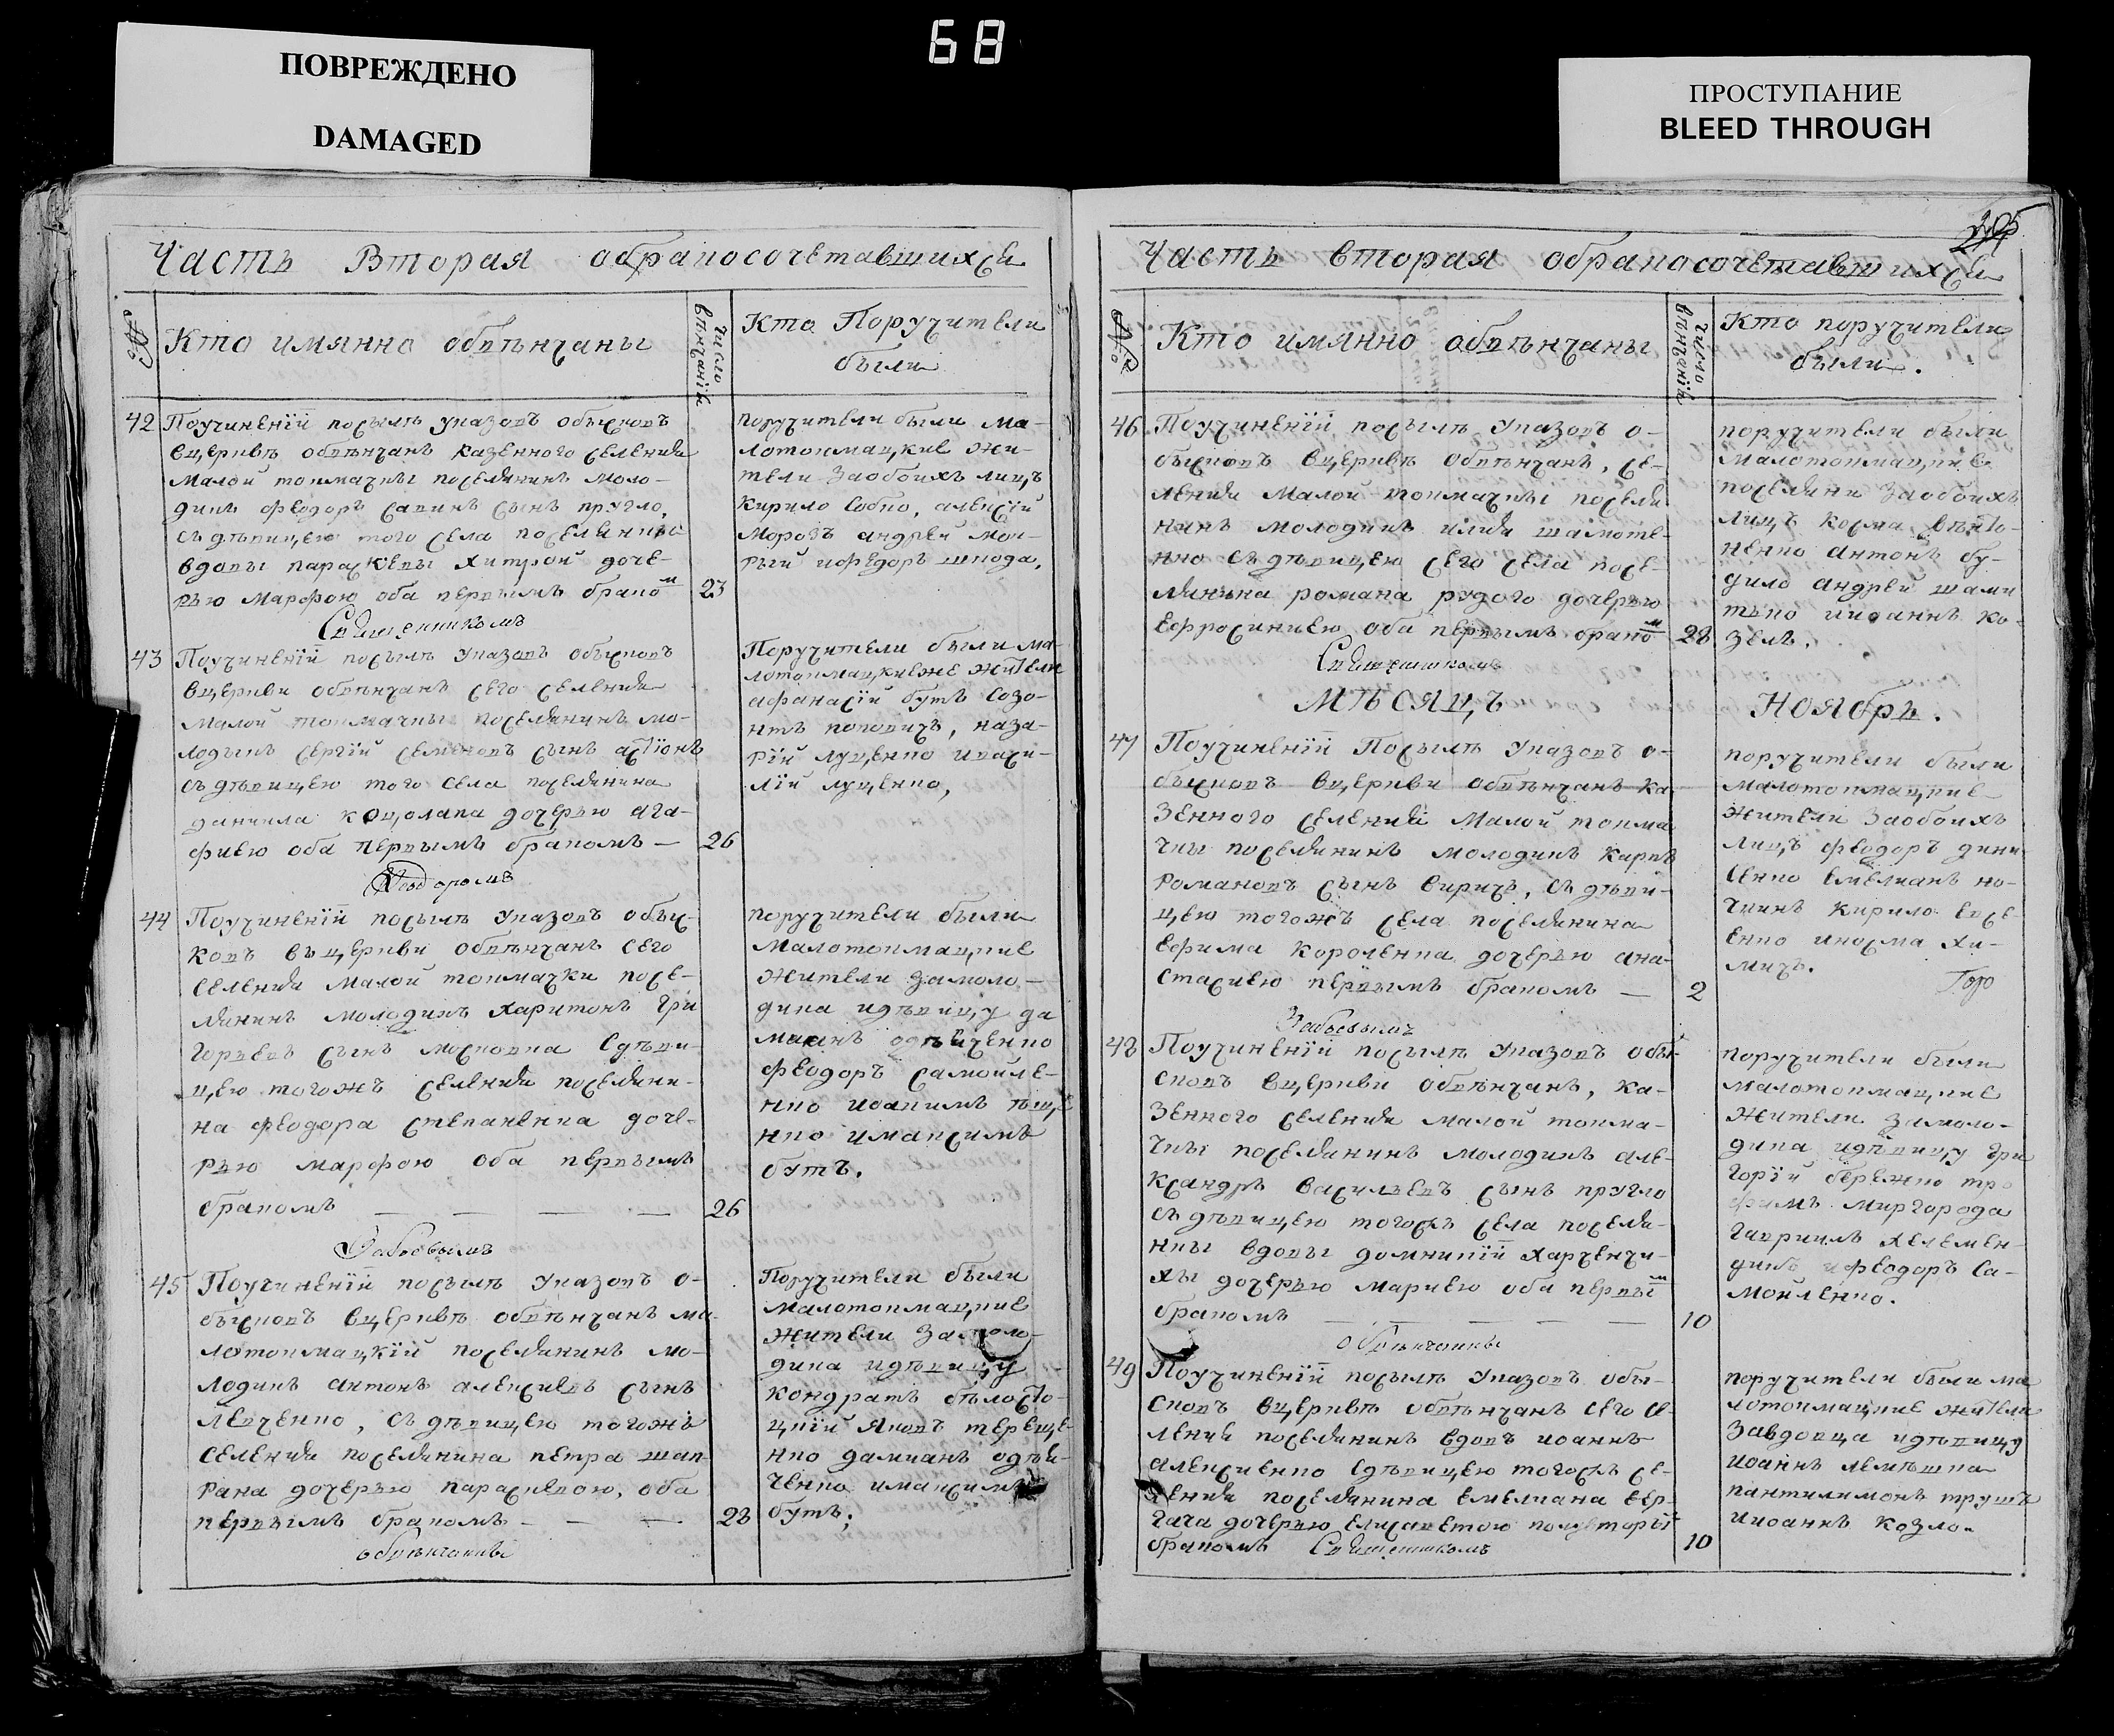 68
ПОВРЕЖДЕНО
DAMAGED
ПРОСТУПАНИЕ
BLEED THROUGH
Часть Вторая обракосочетавшихся
№
Кто имянно обвѣнчаны
число
вѣнчаній
Кто Поручители
были
42
Поучиненіи посылѣ указовъ обысковъ
вцерквѣ обвѣнчанъ казенного селенія
малой токмачки поселянинъ моло-
дикъ феодоръ савинъ сынъ кругло,
съ дѣвицею того села поселянки
вдовы параскевы хитрой доче-
рью марфою оба первымъ брако м
23
Священникомъ
поручители были ма-
лотокмацкие жи-
тели заобоихъ лицъ
кирило собко, алексій
морозъ андрей мок-
рый ифедоръ шкода,
43
Поучиненіи посылѣ указовъ обысковъ
вцеркви обвѣнчанъ сего селенія
малой токмачки поселянинъ мо-
лодыкъ сергій семеновъ сынъ
съ дѣвицею того села поселянина
даниила коцолапа дочерью ага-
фиею оба первымъ бракомъ —
26
Поручители были ма-
лотокмацкиеже жители
афанасій бутъ созо-
нтъ поповичъ, наза-
рій луценко иваси-
лій луценко,
44
Поучиненіи посылѣ указовъ обыс-
ковъ въцеркви обвѣнчанъ сего
селенія малой токмачки посе-
лянинъ молодикъ харитонъ гри
горьевъ сынъ московка сдѣви-
цею тогожъ селенія поселяни-
на феодора степаненка доче-
рью марфою оба первымъ
бракомъ — — — —
26
поручители были
малотокмацкие
жители замоло-
дика идѣвицу да
миянъ одѣйченко
феодоръ самойле-
нко иоакимъ
нко имаксимъ
бутъ.
45
Поучиненіи посылѣ указовъ о-
бысковъ вцерквѣ обвѣнчанъ ма-
лотокмацкій поселянинъ мо-
лодикъ антонъ алексиевъ сынъ
левченко, съ дѣвицею тогожъ
селенія поселянина петра шап-
рана дочерью параскевою, оба
первымъ бракомъ — — —
28
обвѣнчанны
Поручители были
малотокмацкие
жители замоло-
дика идѣвицу
кондратъ бѣлосто-
цкій яковъ тереще-
нко дамианъ одѣй-
ченко имаксимъ
бутъ;
205
Часть вторая обракосочетавшихся
№
Кто имянно обвѣнчаны
число
вѣнчаній
Кто поручители
были.
46
Поучиненіи посылѣ указовъ о-
бысковъ вцерквѣ обвѣнчанъ, се-
ленія малой токмачки поселя
нинъ молодикъ илия шамоте-
нко съ дѣвицею сего села посе-
лянина романа рудого дочерью
ефросиниею оба первымъ брако м
28
Священникомъ
поручители были
малотокмацкие
поселяни заобоихъ
лицъ козма
ненко антонъ бу-
дило андрей шамо
тько ииоаннъ ко-
зелъ.
мѣсяцъ
Ноябрь.
47
Поучиненіи Посылѣ указовъ о-
бысковъ вцеркви обвѣнчанъ ка-
зенного селенія малой токма
чки поселянинъ молодикъ карпъ
романовъ сынъ киричъ, съ дѣви-
цею тогожъ села поселянина
ефима короленка дочерью ана-
стасиею первымъ бракомъ —
2
поручители были
малотокмацкие
жители заобоихъ
лицъ феодоръ дени
сенко емелианъ но-
чкинъ кирило евсе-
енко икосма хи-
мичъ.
48
Поучиненіи посылѣ указовъ обы-
сковъ вцеркви обвѣнчанъ, ка-
зенного селенія малой токма-
чки поселянинъ молодикъ але-
ксандръ васильевъ сынъ кругло
съ дѣвицею тогожъ села поселя-
нки вдовы домникіи харченчи-
хы дочерью мариею оба первы м
бракомъ — — — — —
10
обвѣнчанны
поручители были
малотокмацкие
жители замоло-
дика идѣвицу гри
горій бережко тро
фимъ миргорода
гавриилъ хелемен-
дикъ ифеодоръ са-
мойленко.
49
Поучиненіи посылѣ указовъ обы-
сковъ вцерквѣ обвѣнчанъ сего се-
ленія поселянинъ вдовъ иоаннъ
алексиенко сдѣвицею тогожъ се-
ленія поселянина емелиана вер-
гача дочерью елисаветою
бракомъ Священникомъ
10
поручители были ма
лотокмацкие жители
завдовца идѣвицу
иоаннъ лемѣшка
пантилимонъ трушъ
ииоаннъ козло.